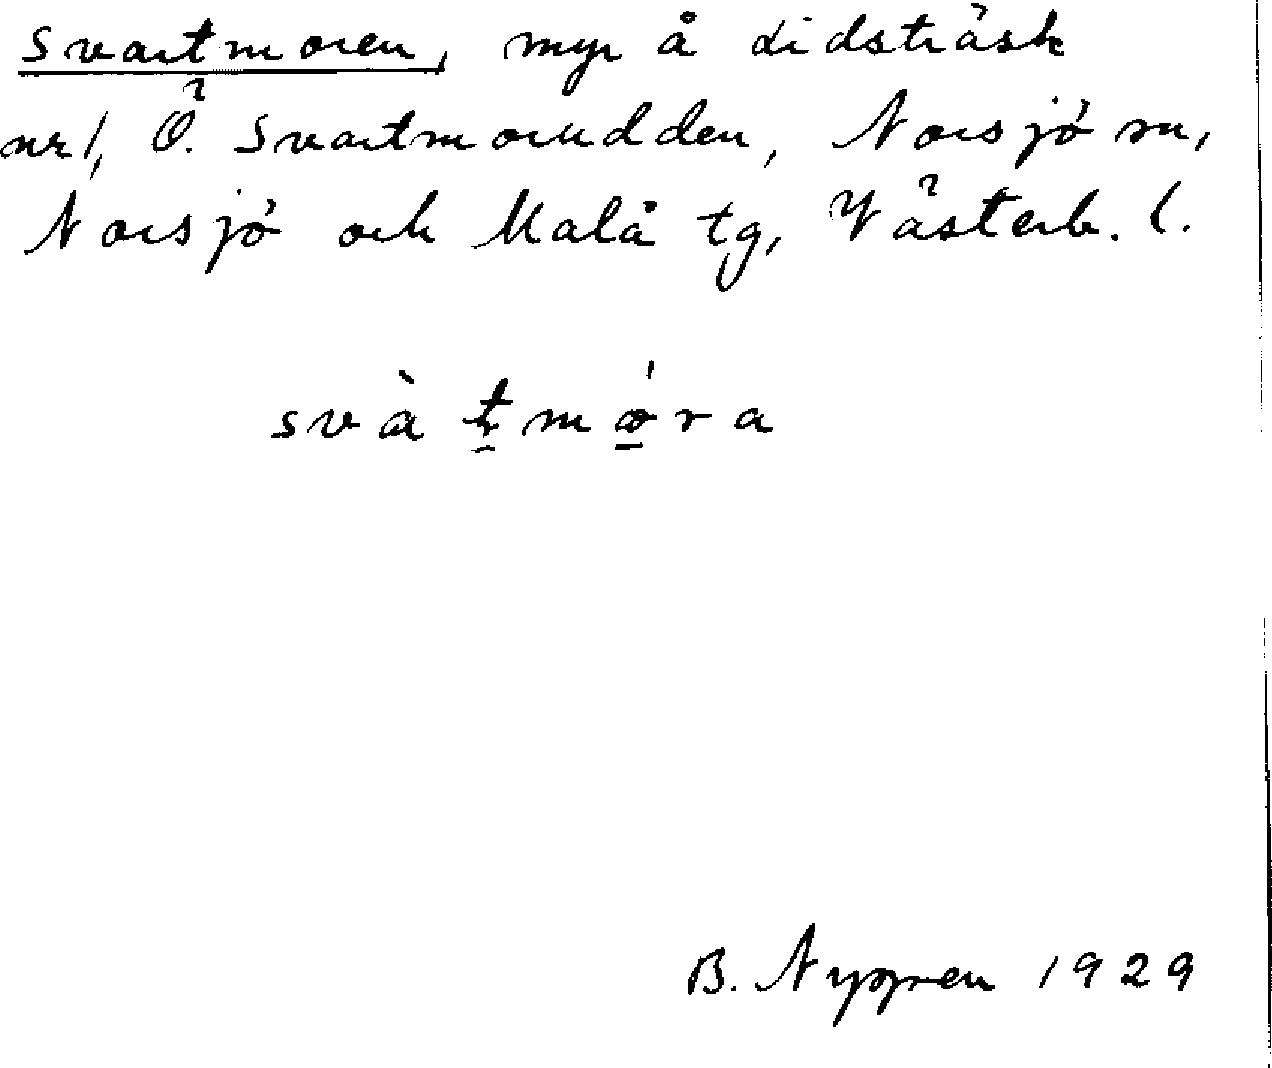 Svartmoren, myr å Lidsträsk
nr 1, Ö. Svartmorudden, Norsjö sn,
Norsjö och Malå tg, Västerb. l.
svàt̠mǫ́ra
B. Nygren 1929